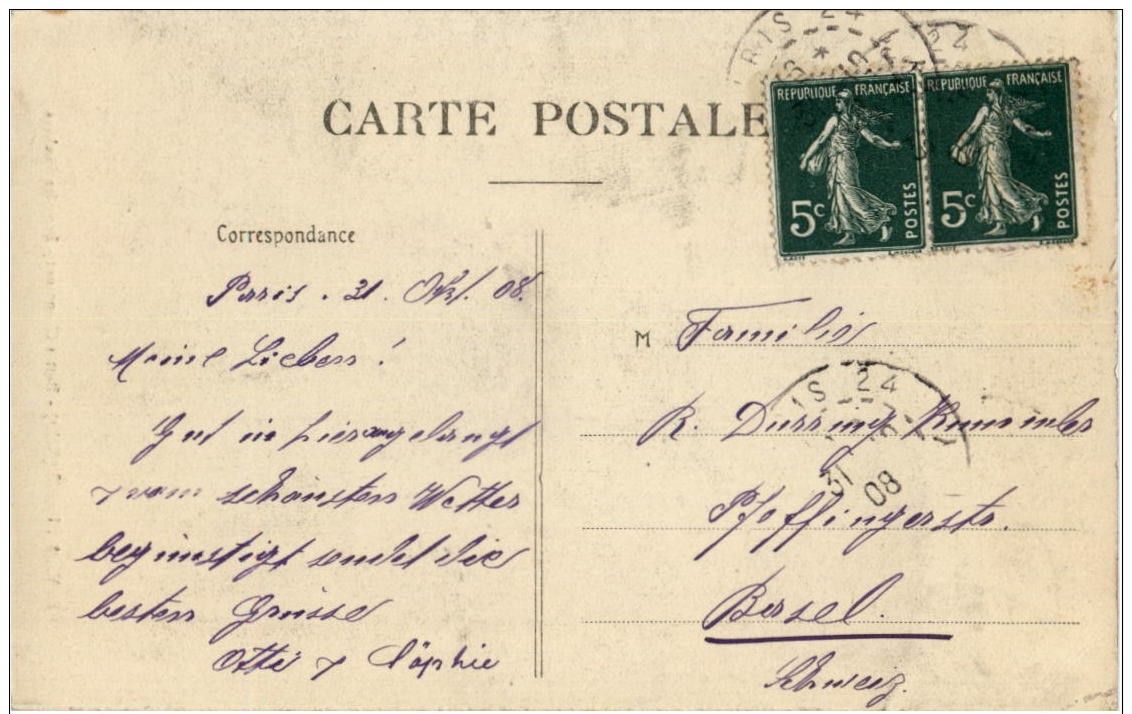 CARTE POSTALE
REPUBLIQUE FRANÇAISE
5c
POSTES
REPUBLIQUE FRANÇAISE
5c
POSTES
Correspondance
Paris. 31. Okt. 08.
Meine Lieben!
Gut in hier angelangt
& vom schönsten Wetter
begünstigt sendet die
besten Grüsse
Otti & Sophie
M Familie
R. Durring
Pfeffingerstr.
Basel.
Schweiz.
IS 24
31
08